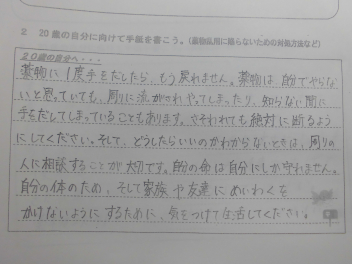 2 20歳の自分に向けて手紙を書こう。(薬物乱用に陥らないための対処方法など)
20歳の自分へ・・・
薬物に1度手をだしたら、もう戻れません。薬物は、自分でやらな
いと思っていても、周りに流がされやってしまったり、知らない間に
手をだしてしまっていることもあります。さそわれても絶対に断るよう
にしてください。そして、どうしたらいいのかわからないときは、周りの
人に相談することが大切です。自分の命は自分にしか守れません。
自分の体のため、そして家族や友達にめいわくを
かけないようにするために、気をつけて生活してください。